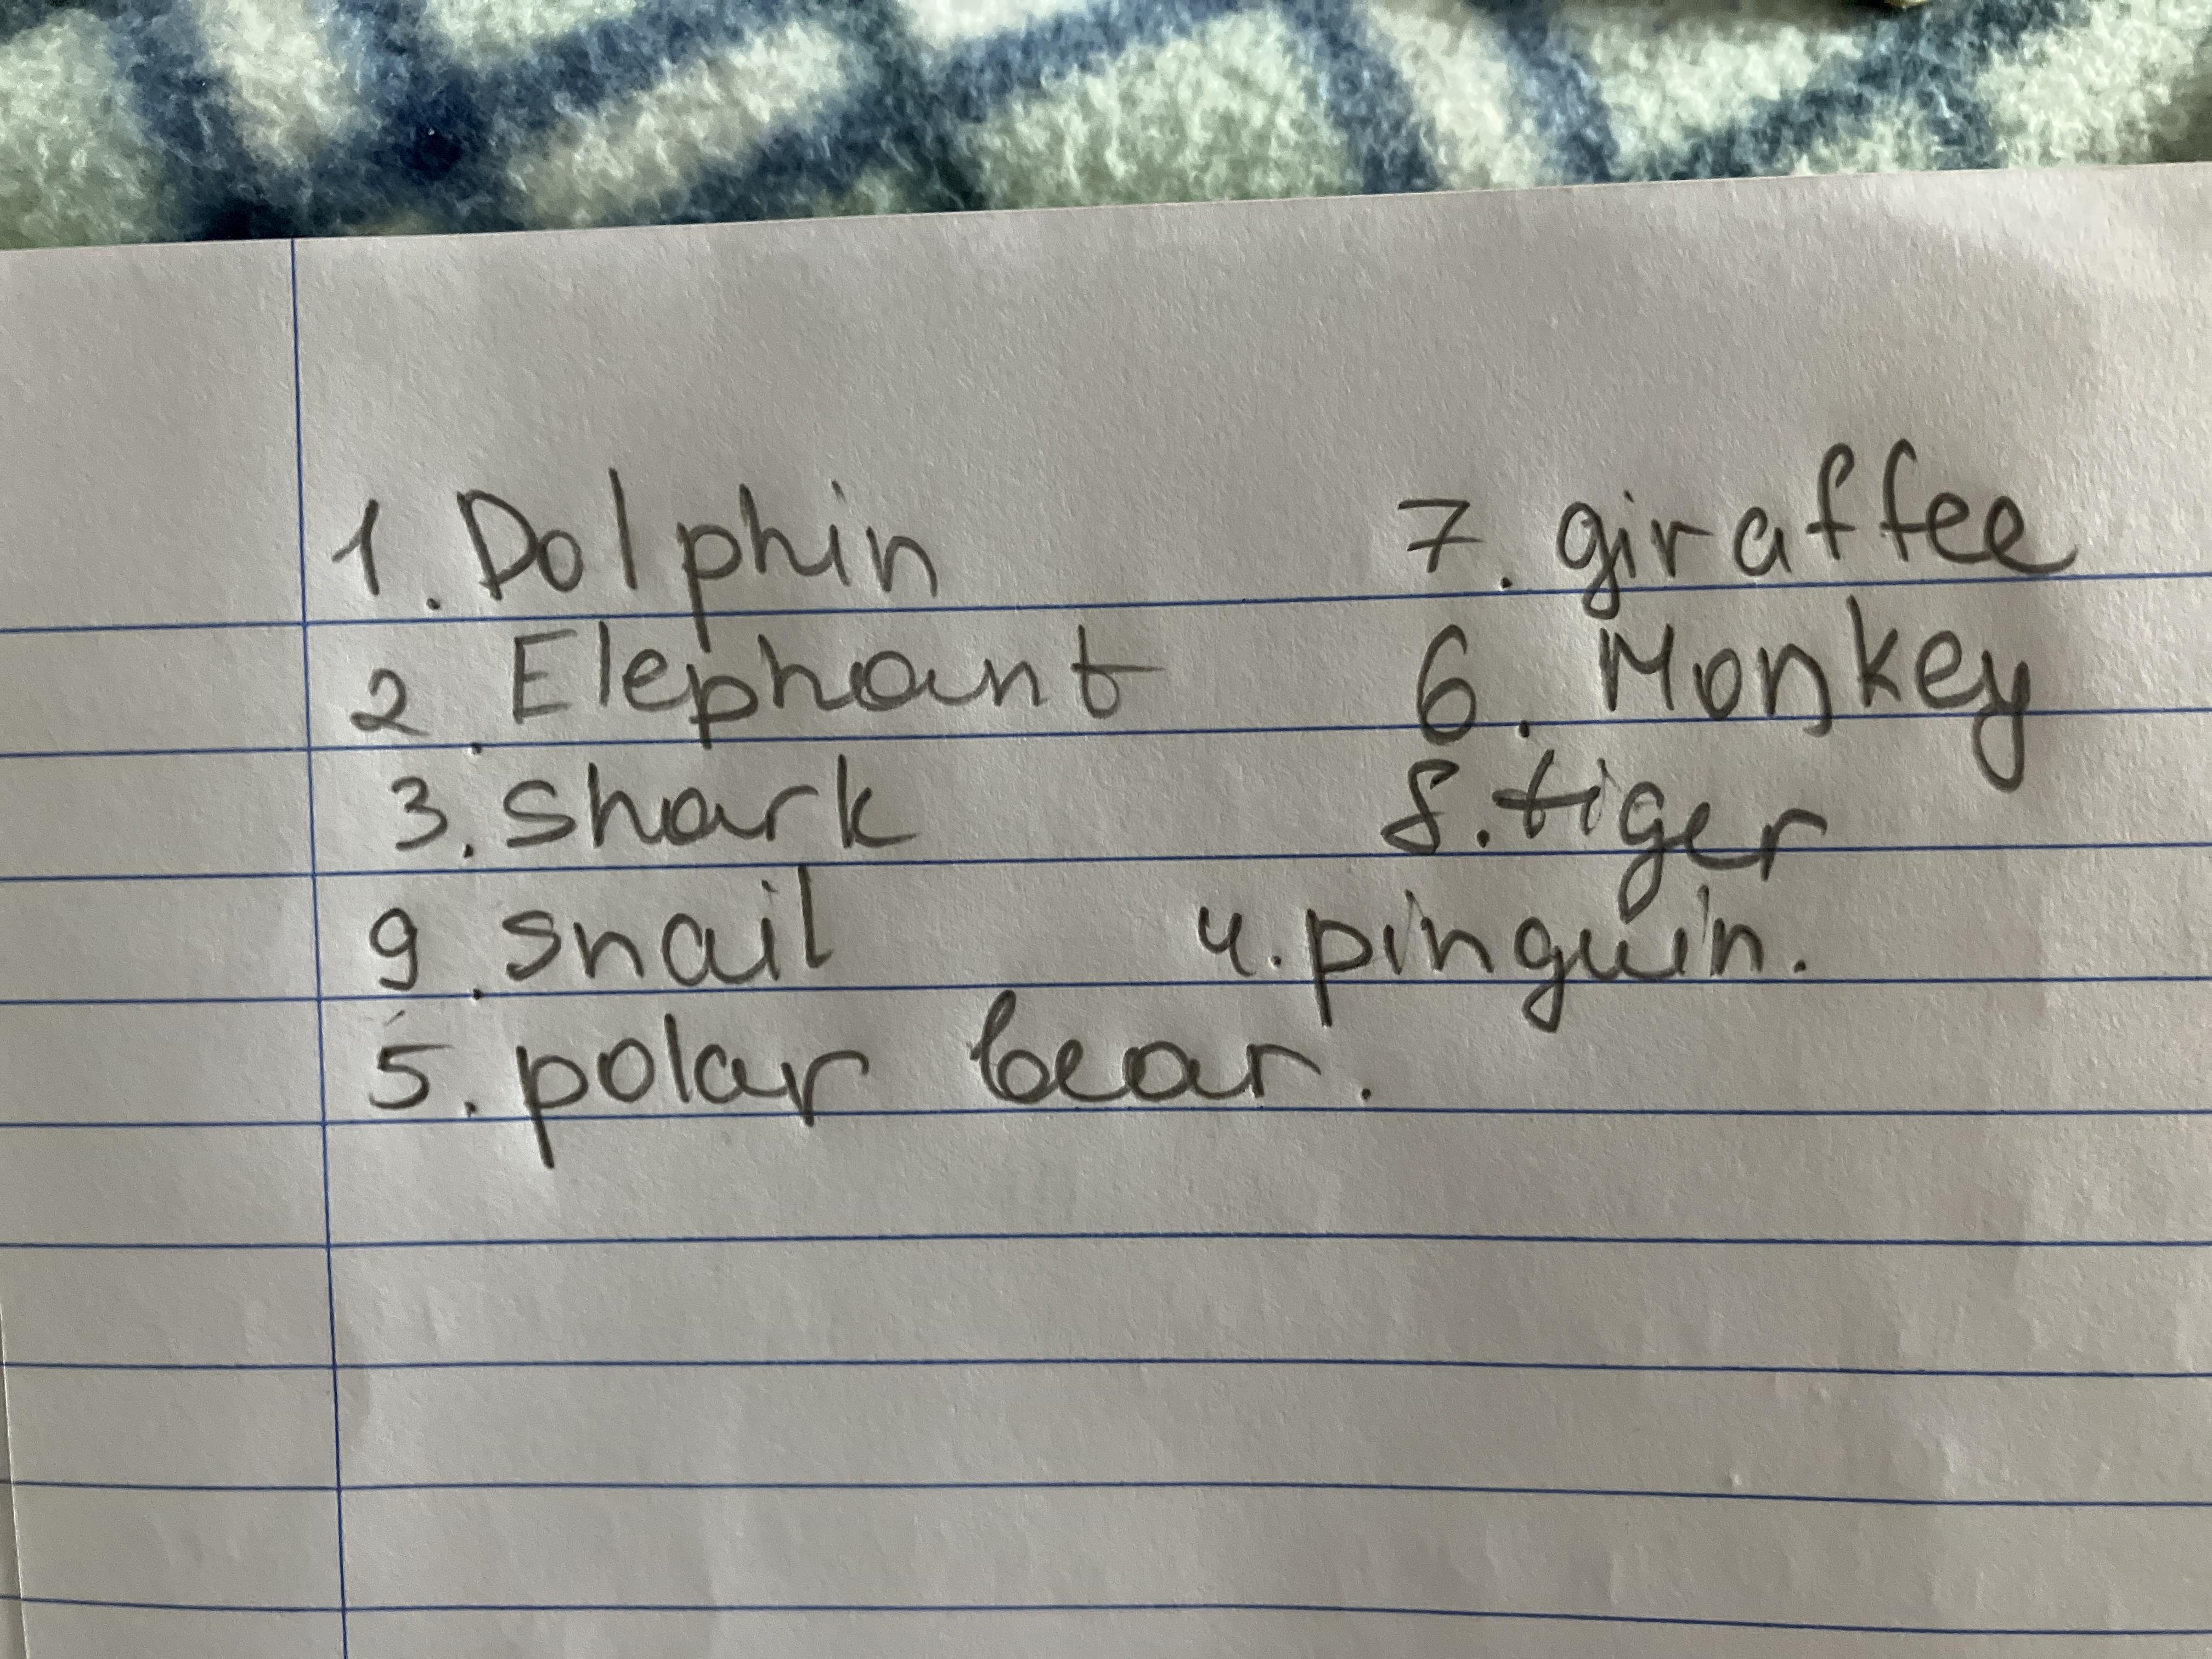 1. Dolphin 7. giraffee
2. Elephant 6. Monkey
3. shark 8. tiger
9. snail 4. pinguin.
5. polar bear.